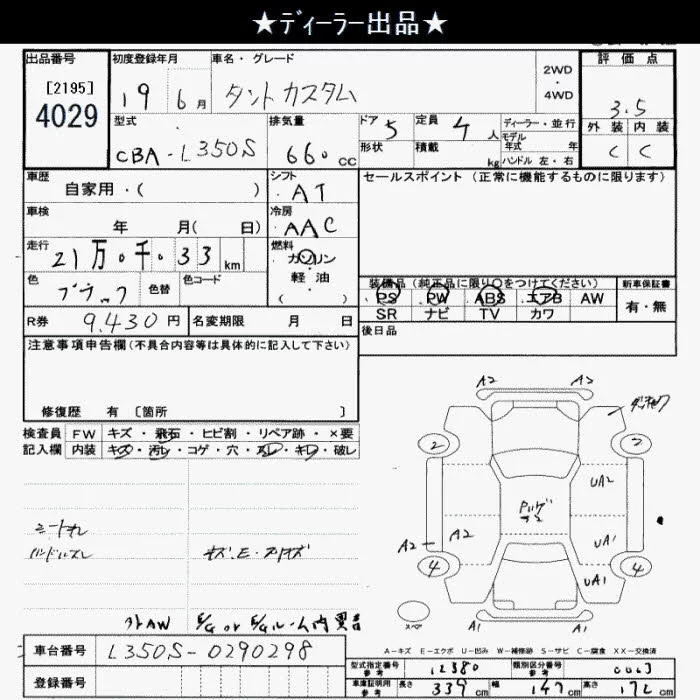 ★ディーラー出品★
出品番号
[2195]
4029
初度登録年月
19 6 月
車名・グレード
タントカスタム
2WD
・
4WD
評価点
3.5
外装 内装
C C
型式
CBA-L350S
排気量
660 CC
ドア 5
形状
定員 4 人
積載 kg
ディーラー・並行
モデル
年式 年
ハンドル 左・右
車歴
自家用・( )
シフト
AT
車検
年 月( 日)
冷房
AAC
走行
21万0千033 km
燃料
ガソリン
軽・油
( )
色
ブラック
色替
色コード
R券 9,430 円
名変期限 月 日
セールスポイント (正常に機能するものに限ります)
装備品 (純正品に限り○をつけてください)
PS PW ABS エアB AW
SR ナビ TV カワ
新車保証書
有・無
後日品
注意事項申告欄(不具合内容等は具体的に記入して下さい)
修復歴 有 〔箇所 〕
検査員 FW キズ・飛石・ヒビ割・リペア跡・×要
記入欄 内装 キズ・汚レ・コゲ・穴・スレ・キレ・破レ
シートスレ
ハンドルスレ
外AW
E/G or E/Gルーム内異音
A2 A2
2 2
UA2
A2 A2
UA1
UA1
4 4
スペア
A1 A1
A-キズ E-エクボ U-凹み W-補修跡 S-サビ C-腐食 XX-交換済
車台番号 L350S-0290298
登録番号
型式指定番号
参考
12380
類別区分番号
参考
0003
車庫証明用
参考
長さ 339 cm 幅 147 cm 高さ 172 cm